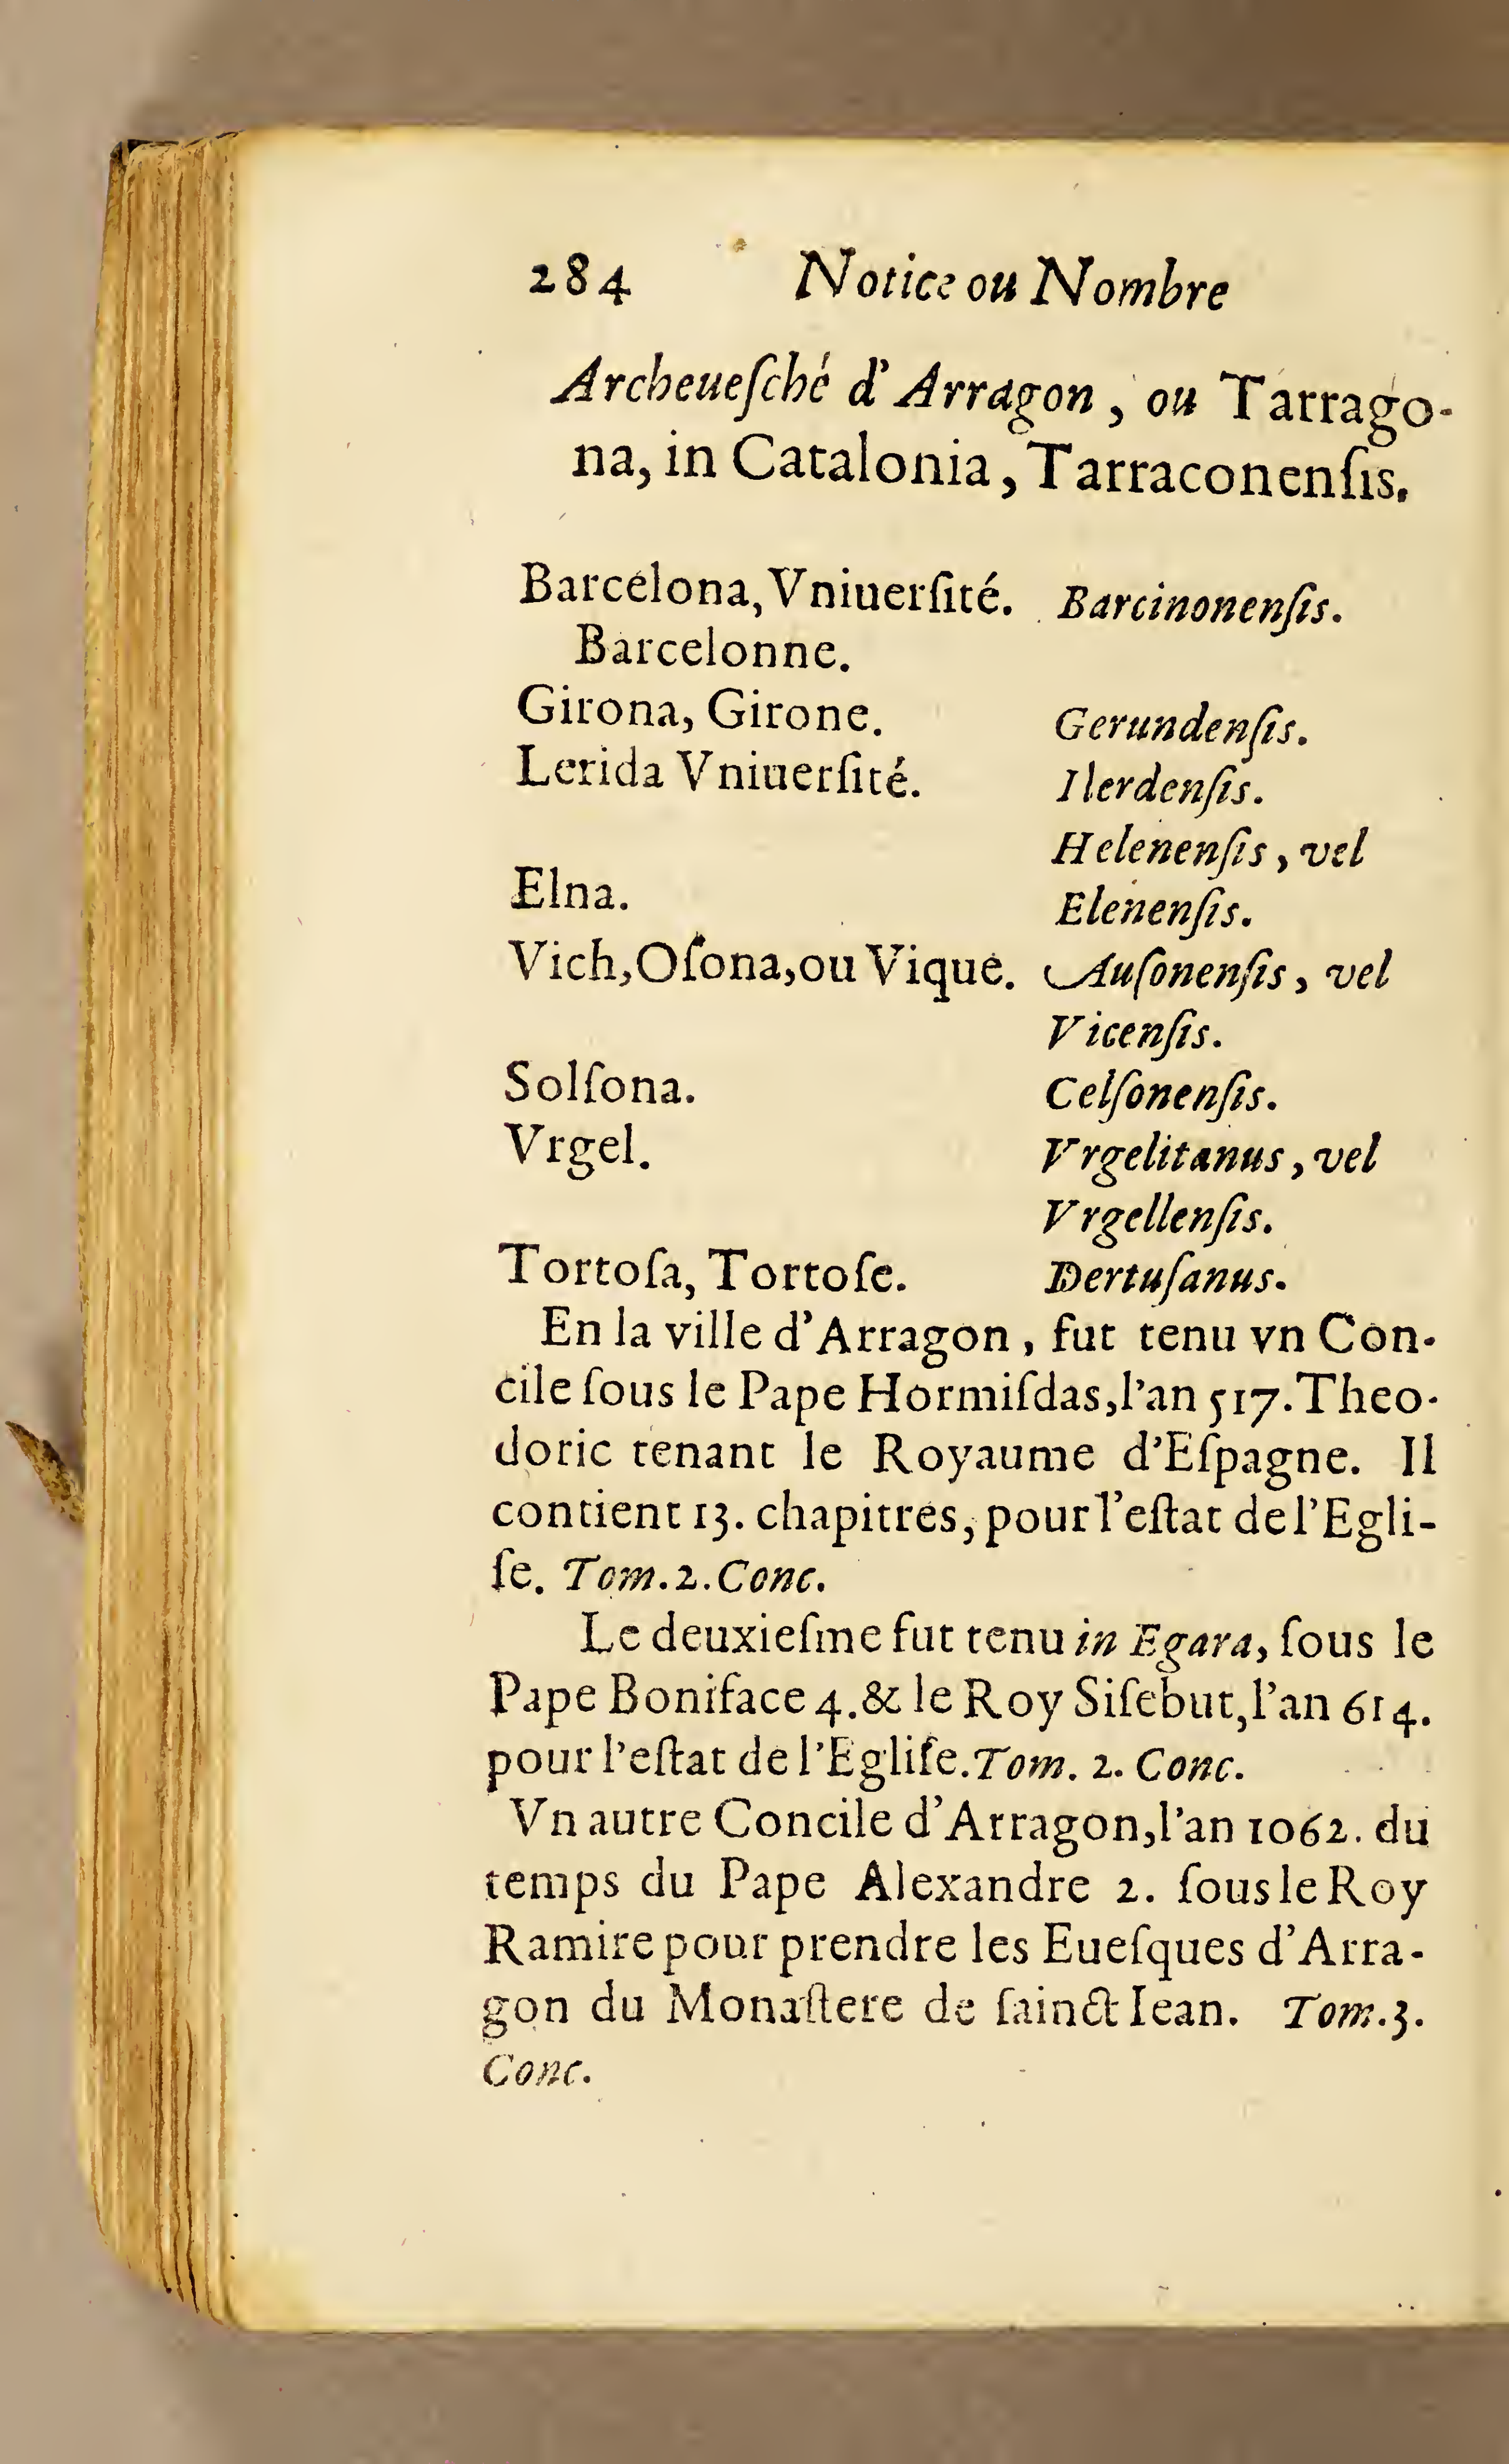 284 Notice ou Nombre
Archeueſché d'Arragon, ou Tarrago-
na, in Catalonia, Tarraconenſis.
Barcelona, Vniuerſité. Barcinonenſis.
Barcelonne.
Girona, Girone. Gerundenſis.
Lerida Vniuerſité. Ilerdenſis.
Helenenſis, vel
Elna. Elenenſis.
Vich, Oſona, ou Vique. Auſonenſis, vel
Vicenſis.
Solſona. Celſonenſis.
Vrgel. Vrgelitanus, vel
Vrgellenſis.
Tortoſa, Tortoſe. Dertuſanus.
En la ville d'Arragon, fut tenu vn Con-
cile ſous le Pape Hormiſdas, l'an 517. Theo-
doric tenant le Royaume d'Eſpagne. Il
contient 13. chapitres, pour l'eſtat de l'Egli-
ſe. Tom. 2. Conc.
Le deuxieſme fut tenu in Egara, ſous le
Pape Boniface 4. & le Roy Siſebut, l'an 614.
pour l'eſtat de l'Egliſe. Tom. 2. Conc.
Vn autre Concile d'Arragon, l'an 1062. du
temps du Pape Alexandre 2. ſous le Roy
Ramire pour prendre les Eueſques d'Arra-
gon du Monaſtere de ſainct Iean. Tom. 3.
Conc.